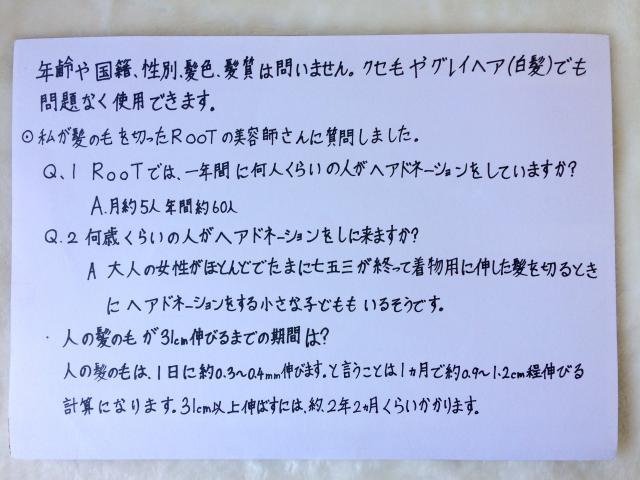 年齢や国籍、性別、髪色、髪質は問いません。クセ毛やグレイヘア(白髪)でも
問題なく使用できます。
⊙私が髪の毛を切ったRooTの美容師さんに質問しました。
Q、1 RooTでは、一年間に何人くらいの人がヘアドネーションをしていますか?
A.月約5人年間約60人
Q.2 何歳くらいの人がヘアドネーションをしに来ますか?
A 大人の女性がほとんどでたまに七五三が終って着物用に伸した髪を切るとき
にヘアドネーションをする小さな子どももいるそうです。
・人の髪の毛が31cm伸びるまでの期間は?
人の髪の毛は、1日に約0.3~0.4mm伸びます。と言うことは1ヵ月で約0.9~1.2cm程伸びる
計算になります。31cm以上伸ばすには、約、2年2ヵ月くらいかかります。